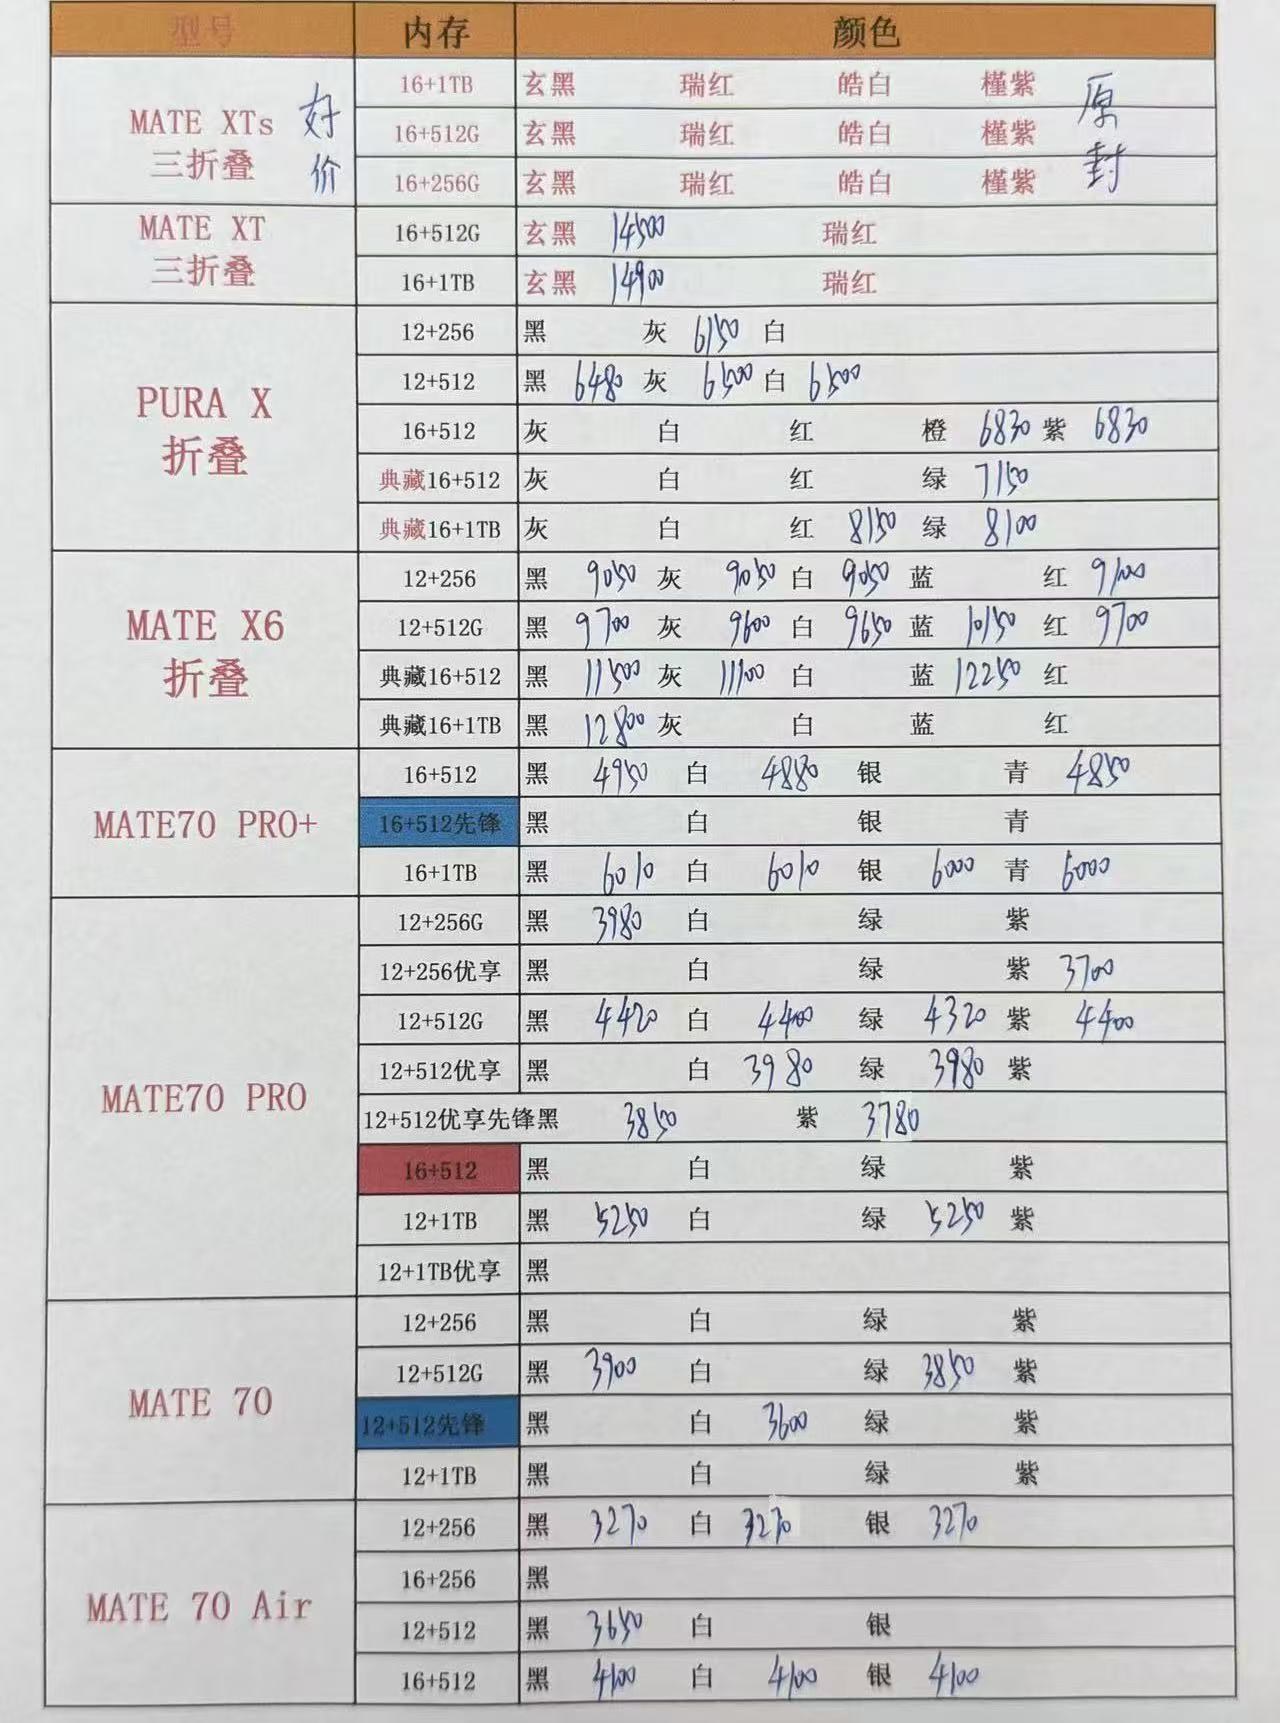 型号 内存 颜色
MATE XTs 三折叠 好价 16+1TB 玄黑 瑞红 皓白 槿紫 原封
16+512G 玄黑 瑞红 皓白 槿紫
16+256G 玄黑 瑞红 皓白 槿紫
MATE XT 三折叠 16+512G 玄黑 14500 瑞红
16+1TB 玄黑 14900 瑞红
PURA X 折叠 12+256 黑 灰 6150 白
12+512 黑 6480 灰 6500 白 6500
16+512 灰 白 红 橙 6830 紫 6830
典藏16+512 灰 白 红 绿 7150
典藏16+1TB 灰 白 红 8150 绿 8100
MATE X6 折叠 12+256 黑 9050 灰 9050 白 9050 蓝 红 9100
12+512G 黑 9700 灰 9600 白 9650 蓝 10150 红 9700
典藏16+512 黑 11500 灰 11100 白 蓝 12250 红
典藏16+1TB 黑 12800 灰 白 蓝 红
MATE70 PRO+ 16+512 黑 4950 白 4880 银 青 4850
16+512先锋 黑 白 银 青
16+1TB 黑 6010 白 6010 银 6000 青 6000
MATE70 PRO 12+256G 黑 3980 白 绿 紫
12+256优享 黑 白 绿 紫 3700
12+512G 黑 4420 白 4400 绿 4320 紫 4400
12+512优享 黑 白 3980 绿 3980 紫
12+512优享先锋黑 3850 紫 3780
16+512 黑 白 绿 紫
12+1TB 黑 5250 白 绿 5250 紫
12+1TB优享 黑
MATE 70 12+256 黑 白 绿 紫
12+512G 黑 3900 白 绿 3850 紫
12+512先锋 黑 白 3600 绿 紫
12+1TB 黑 白 绿 紫
MATE 70 Air 12+256 黑 3270 白 3270 银 3270
16+256 黑
12+512 黑 3650 白 银
16+512 黑 4100 白 4100 银 4100